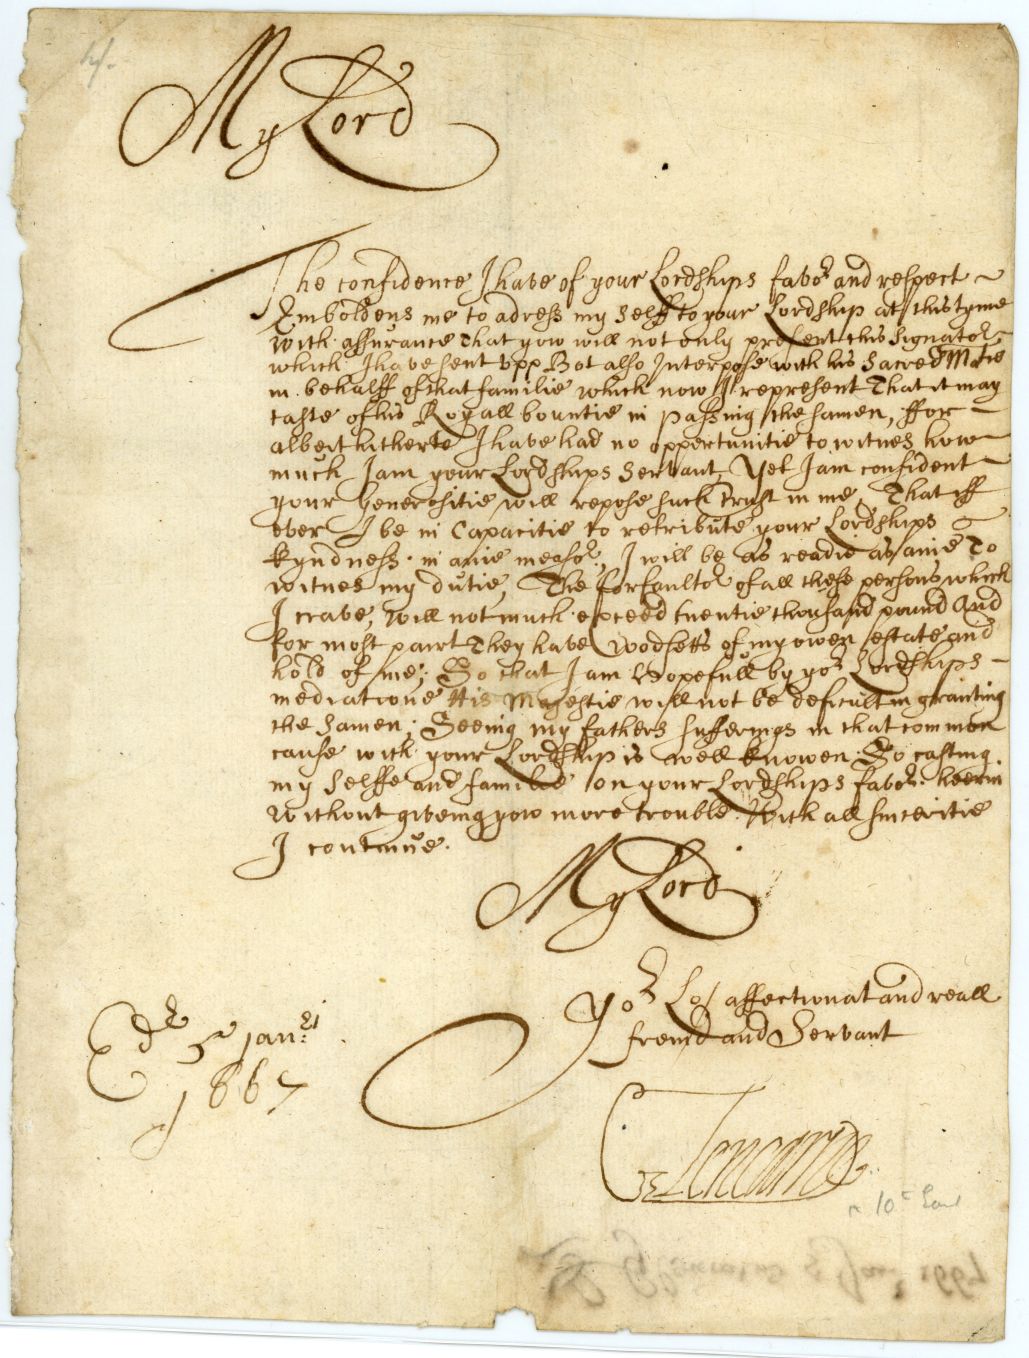 My Lord
The confidence I have of your Lordships favor and respect
Emboldens me to adress my selff to your Lordship at this tyme
With assurance That yow will not only present this Signator
which I have sent upp Bot also Interpose with his Sacred Matie
in behalff of that familie which now I represent That it may
taste of his Royall bountie in passing the samen, ffor
albeit hitherto I have had no opportunitie to witnes how
much I am your Lordships servant, Yet I am confident
your Generositie will repose such trust in me, That iff
ever I be in Capacitie to retribute your Lordships
kyndness in anie measor, I will be as readie as anie To
witnes my dutie, The forfaultor of all these persons which
I crave, Will not much exceed tuentie thousand pound And
for most pairt They have Wodsetts of my owen estate and
hold of me; So that I am Hopefull by yor Lordships
mediatione His Majestie will not be deficult in granting
the Samen; Seeing my fathers sufferings in that common
cause with your Lordship is well knowen. So casting
my selffe and familie on your Lordships favor heerin
Without giveing yow more trouble. With all sinceritie
I continue.
My Lord
Yor Lo/ affectionat and reall
freind and Servant
Edr 5 Janry
1667
Glencairne
10th Earl